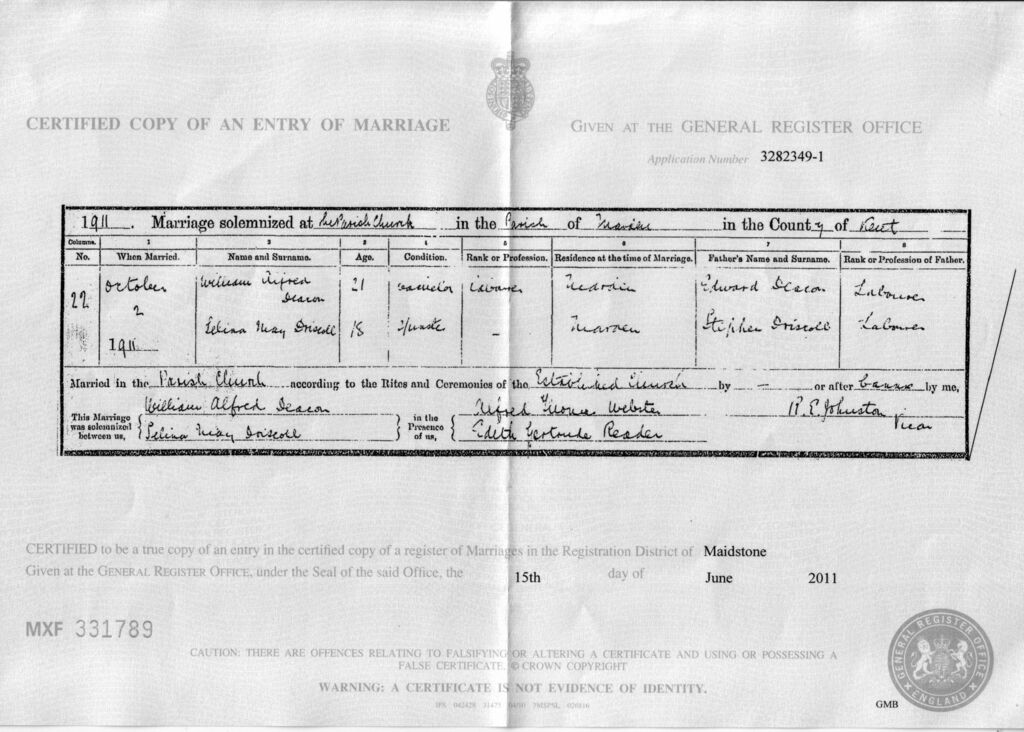 CERTIFIED COPY OF AN ENTRY OF MARRIAGE
GIVEN AT THE GENERAL REGISTER OFFICE
Application Number 3282349-1
1911. Marriage solemnized at the Parish Church in the Parish of Marden in the County of Kent
Columns. 1 2 3 4 5 6 7 8
No. When Married. Name and Surname. Age. Condition. Rank or Profession. Residence at the time of Marriage. Father's Name and Surname. Rank or Profession of Father.
22 October 2 1911
William Alfred Deacon 21 Bachelor Labourer Marden Edward Deacon Labourer
Selina May Driscoll 18 Spinster – Marden Stephen Driscoll Labourer
Married in the Parish Church according to the Rites and Ceremonies of the Established Church by – or after Banns by me,
This Marriage was solemnized between us, William Alfred Deacon
Selina May Driscoll
in the Presence of us, Alfred Thomas Webster
Edith Gertrude Reader
R. E. Johnston
Vicar
CERTIFIED to be a true copy of an entry in the certified copy of a register of Marriages in the Registration District of Maidstone
Given at the GENERAL REGISTER OFFICE, under the Seal of the said Office, the 15th day of June 2011
MXF 331789
CAUTION: THERE ARE OFFENCES RELATING TO FALSIFYING OR ALTERING A CERTIFICATE AND USING OR POSSESSING A
FALSE CERTIFICATE. © CROWN COPYRIGHT
WARNING: A CERTIFICATE IS NOT EVIDENCE OF IDENTITY.
GENERAL REGISTER OFFICE
ENGLAND
GMB